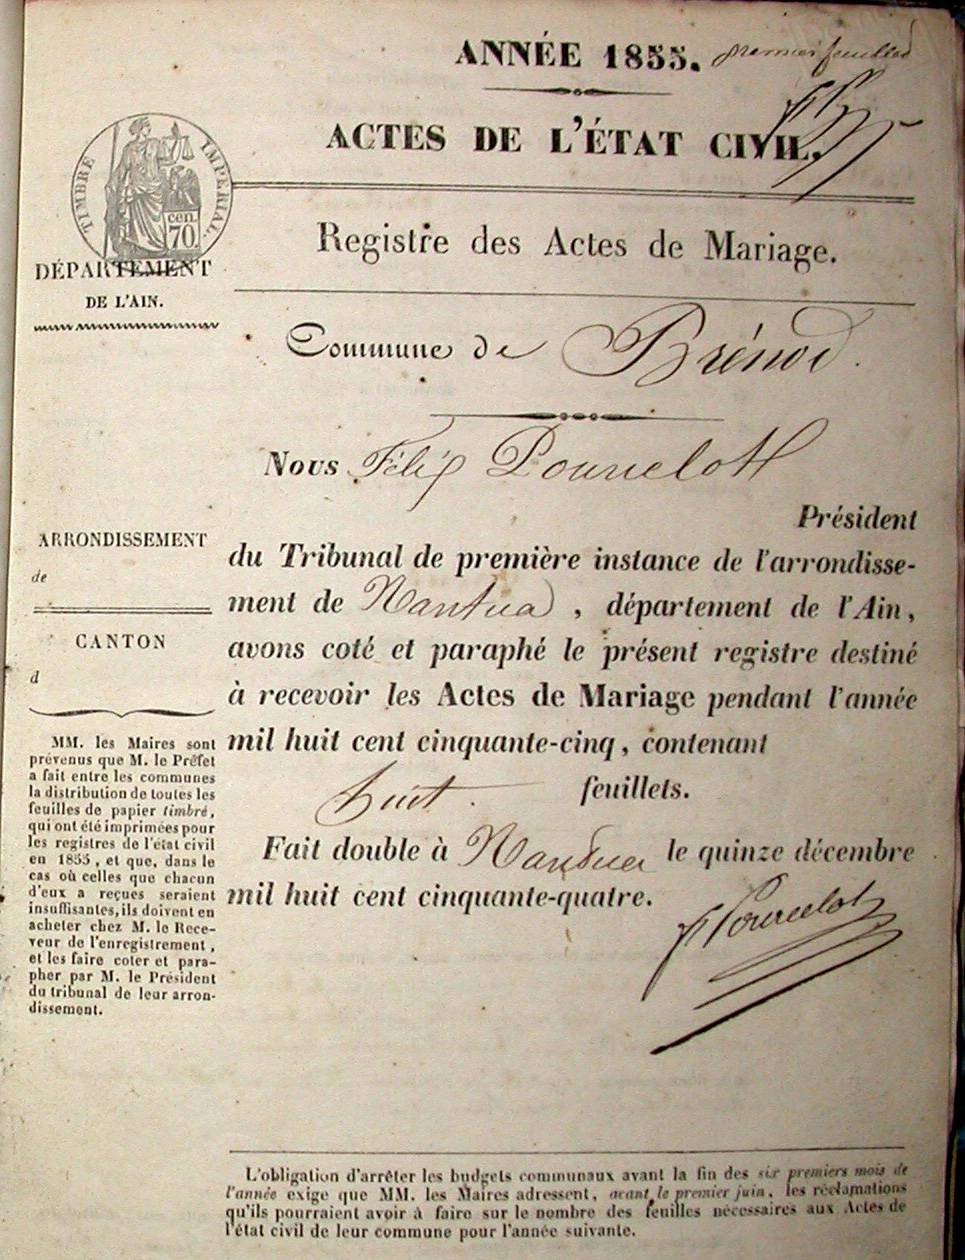 ANNÉE 1855. premier feuillet
ACTES DE L'ÉTAT CIVIL.
TIMBRE IMPÉRIAL.
cen.
70.
DÉPARTEMENT
DE L'AIN.
Registre des Actes de Mariage.
Commune de Brénod.
Nous Félix Pourcelot
Président
du Tribunal de première instance de l'arrondisse-
ment de Nantua, département de l'Ain,
avons coté et paraphé le présent registre destiné
à recevoir les Actes de Mariage pendant l'année
mil huit cent cinquante-cinq, contenant
huit. feuillets.
Fait double à Nantua le quinze décembre
mil huit cent cinquante-quatre.
F Pourcelot
ARRONDISSEMENT
de
CANTON
d
MM. les Maires sont
prévenus que M. le Préfet
a fait entre les communes
la distribution de toutes les
feuilles de papier timbré,
qui ont été imprimées pour
les registres de l'état civil
en 1855, et que, dans le
cas où celles que chacun
d'eux a reçues seraient
insuffisantes, ils doivent en
acheter chez M. le Rece-
veur de l'enregistrement,
et les faire coter et para-
pher par M. le Président
du tribunal de leur arron-
dissement.
L'obligation d'arrêter les budgets communaux avant la fin des six premiers mois de
l'année exige que MM. les Maires adressent, avant le premier juin, les réclamations
qu'ils pourraient avoir à faire sur le nombre des feuilles nécessaires aux Actes de
l'état civil de leur commune pour l'année suivante.